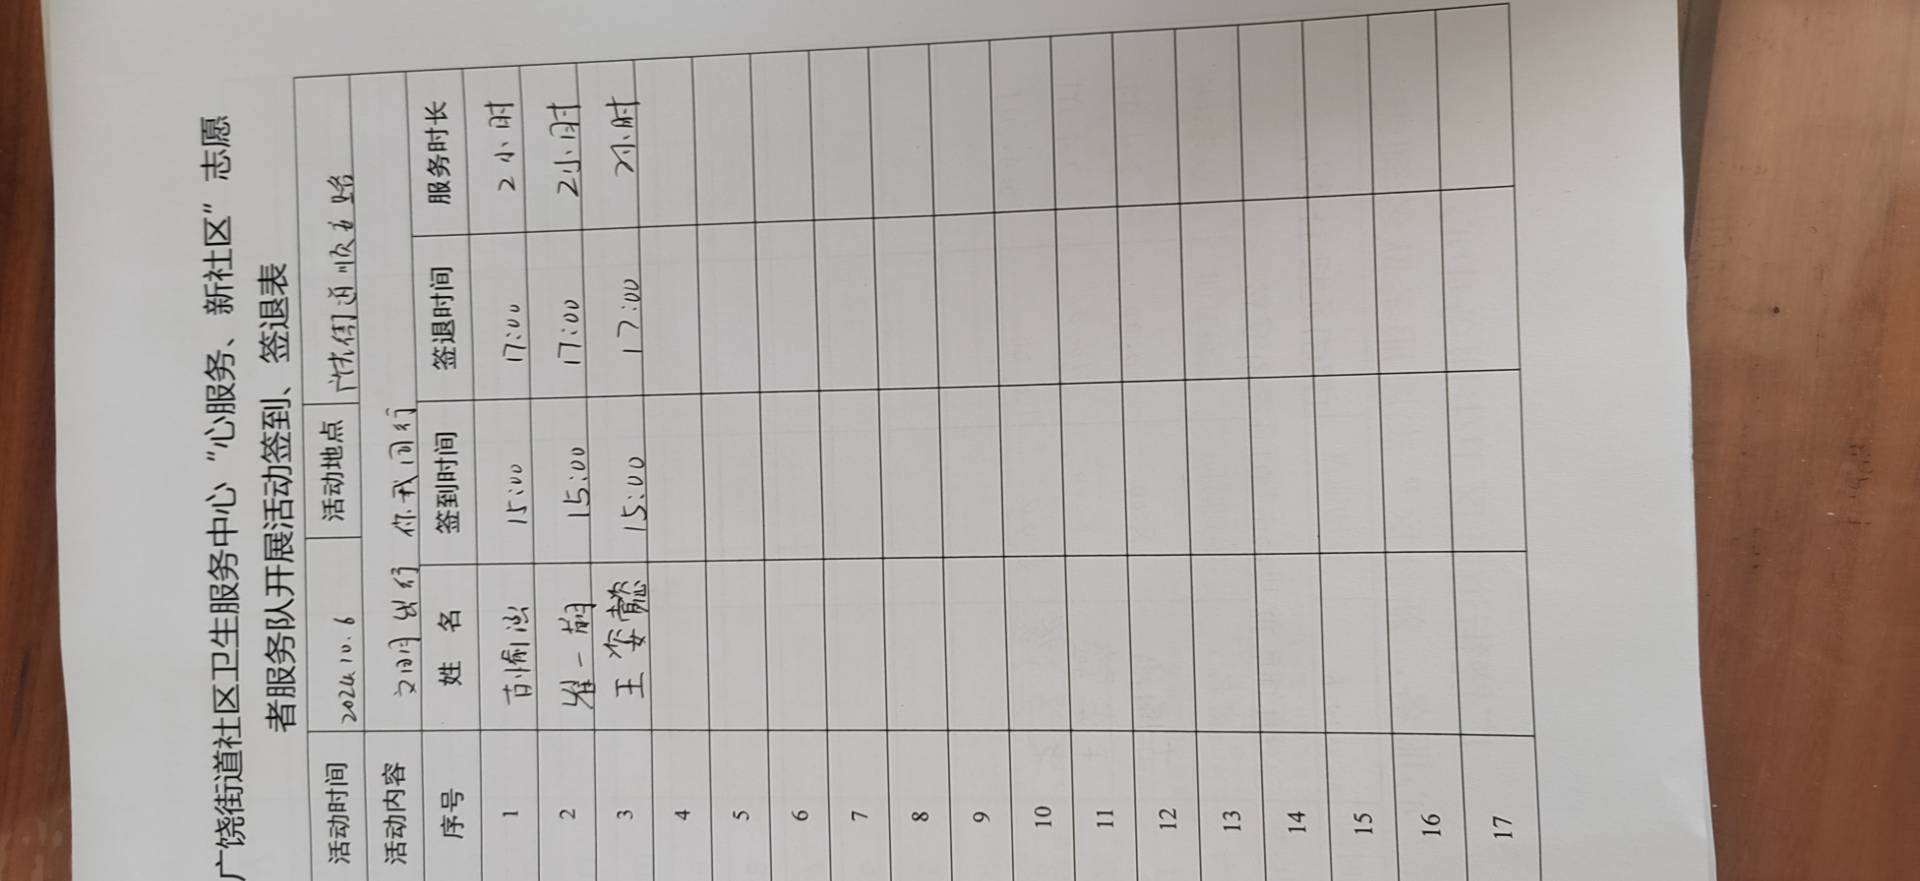 广饶街道社区卫生服务中心“心服务、新社区”志愿
者服务队开展活动签到、签退表
活动时间 2024.10.6 活动地点 广饶街道顺安路
活动内容 文明出行 你我同行
序号 姓 名 签到时间 签退时间 服务时长
1 15:00 17:00 2小时
2 崔一 15:00 17:00 2小时
3 王姿懿 15:00 17:00 2小时
4
5
6
7
8
9
10
11
12
13
14
15
16
17